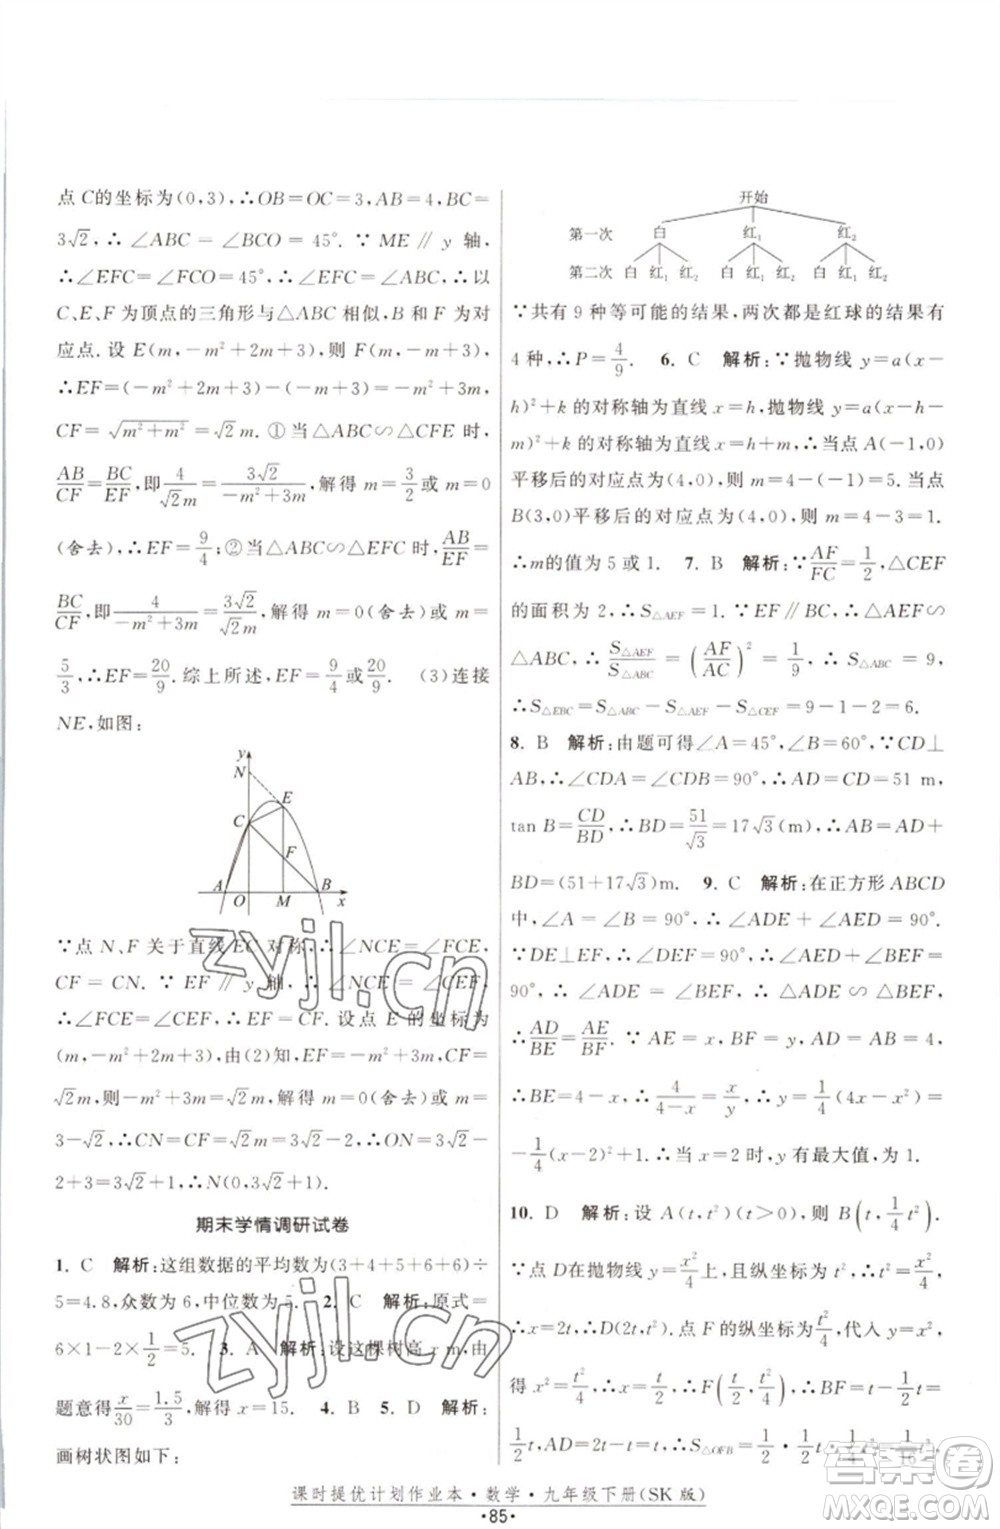 点 C的坐标为(0,3),∴OB=OC=3,AB=4,BC=
3√2,∴∠ABC=∠BCO=45°.∵ME∥y 轴,
∴∠EFC=∠FCO=45°,∴∠ABC=∠EFC,∴以
C、E、F 为顶点的三角形与△ABC 相似,B 和 F 为对
应点.设 E(m,-m²+2m+3),则 F(m,-m+3),
∴EF=(-m²+2m+3)-(-m+3)=-m²+3m,
CF=√(m²+m²)=√2m.①当△ABC∽△CFE 时,
AB/CF=BC/EF,即4/(√2m)=3√2/(-m²+3m),解得 m=3/2或 m=0
(舍去),∴EF=9/4;②当△ABC∽△EFC 时,AB/EF=
BC/CF,即4/(-m²+3m)=3√2/(√2m),解得 m=0(舍去)或 m=
5/3,∴EF=20/9.综上所述,EF=9/4或20/9. (3)连接
NE,如图:
y
N
E
C
F
A O M B x
∵点 N、F 关于直线 EC 对称,∴∠NCE=∠FCE,
CF=CN.∵EF∥y 轴,∴∠NCE=∠CEF,
∴∠FCE=∠CEF,∴CF=EF.设点 E 的坐标为
(m,-m²+2m+3),由(2)知,EF=-m²+3m,CF=
√2m,则-m²+3m=√2m,解得 m=0(舍去)或 m=
3-√2,∴CN=CF=√2m=3√2-2,∴ON=3√2-
2+3=3√2+1,∴N(0,3√2+1).
期末学情调研试卷
1. C 解析:这组数据的平均数为(3+4+5+6+6)÷
5=4.8,众数为 6,中位数为 5. 2. C 解析:原式=
6×1-2×1/2=5. 3. A 解析:设这棵树高 x m,由
题意得x/30=1.5/3,解得 x=15. 4. B 5. D 解析:
画树状图如下:
开始
第一次 白 红₁ 红₂
第二次 白 红₁ 红₂ 白 红₁ 红₂ 白 红₁ 红₂
∵共有 9 种等可能的结果,两次都是红球的结果有
4 种,∴P=4/9. 6. C 解析:∵抛物线 y=a(x-
h)²+k 的对称轴为直线 x=h,抛物线 y=a(x-h-
m)²+k 的对称轴为直线 x=h+m,∴当点 A(-1,0)
平移后的对应点为(4,0),则 m=4-(-1)=5.当点
B(3,0)平移后的对应点为(4,0),则 m=4-3=1.
∴m的值为 5 或 1. 7. B 解析:∵AF/FC=1/2,△CEF
的面积为 2,∴S△AEF=1.∵EF∥BC,∴△AEF∽
△ABC,∴S△AEF/S△ABC=(AF/AC)²=1/9,∴S△ABC=9,
∴S△EBC=S△ABC-S△AEF-S△CEF=9-1-2=6.
8. B 解析:由题可得∠A=45°,∠B=60°.∵CD⊥
AB,∴∠CDA=∠CDB=90°,∴AD=CD=51 m,
tan B=CD/BD,∴BD=51/√3=17√3(m),∴AB=AD+
BD=(51+17√3)m. 9. C 解析:在正方形 ABCD
中,∠A=∠B=90°,∴∠ADE+∠AED=90°.
∵DE⊥EF,∴∠DEF=90°,∴∠AED+∠BEF=
90°,∴∠ADE=∠BEF,∴△ADE∽△BEF,
∴AD/BE=AE/BF.∵AE=x,BF=y,AD=AB=4,
∴BE=4-x,∴4/(4-x)=x/y,∴y=1/4(4x-x²)=
-1/4(x-2)²+1,∴当 x=2 时,y 有最大值,为 1.
10. D 解析:设 A(t,t²)(t>0),则 B(t,1/4t²).
∵点 D在抛物线 y=x²/4上,且纵坐标为 t²,∴t²=x²/4,
∴x=2t,∴D(2t,t²).点 F 的纵坐标为t²/4,代入 y=x²
得 x²=t²/4,∴x=t/2,∴F(t/2,t²/4),∴BF=t-t/2=
1/2t,AD=2t-t=t,∴S△OFB=1/2·t²/4·1/2t=1/16t³,
课时提优计划作业本·数学·九年级下册(SK 版)
·85·
zyjl.cn
zyjl.cn
作业精灵